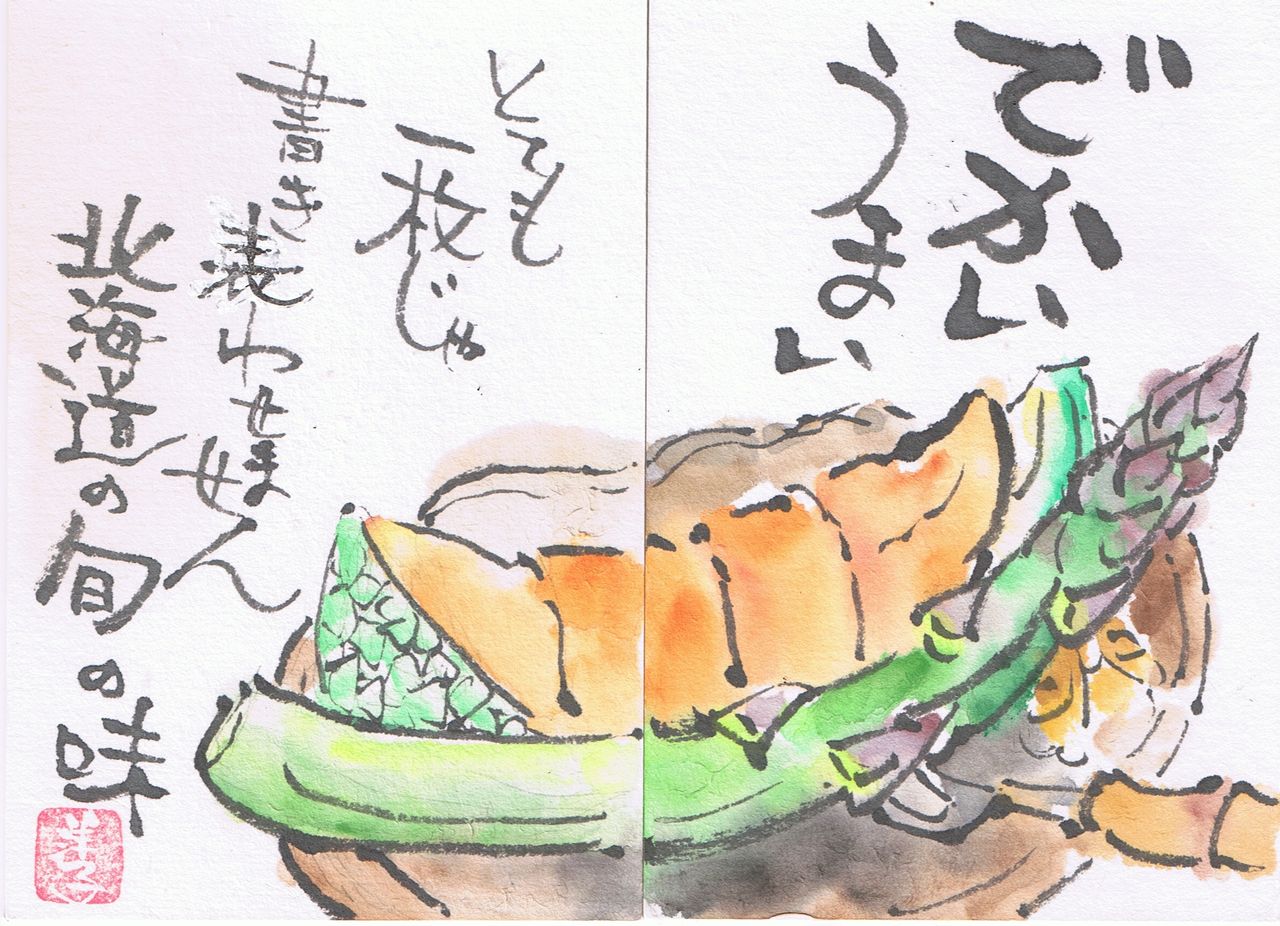 でかい
うまい
とても
一枚じゃ
書き表わせま
せん
北海道の旬の味